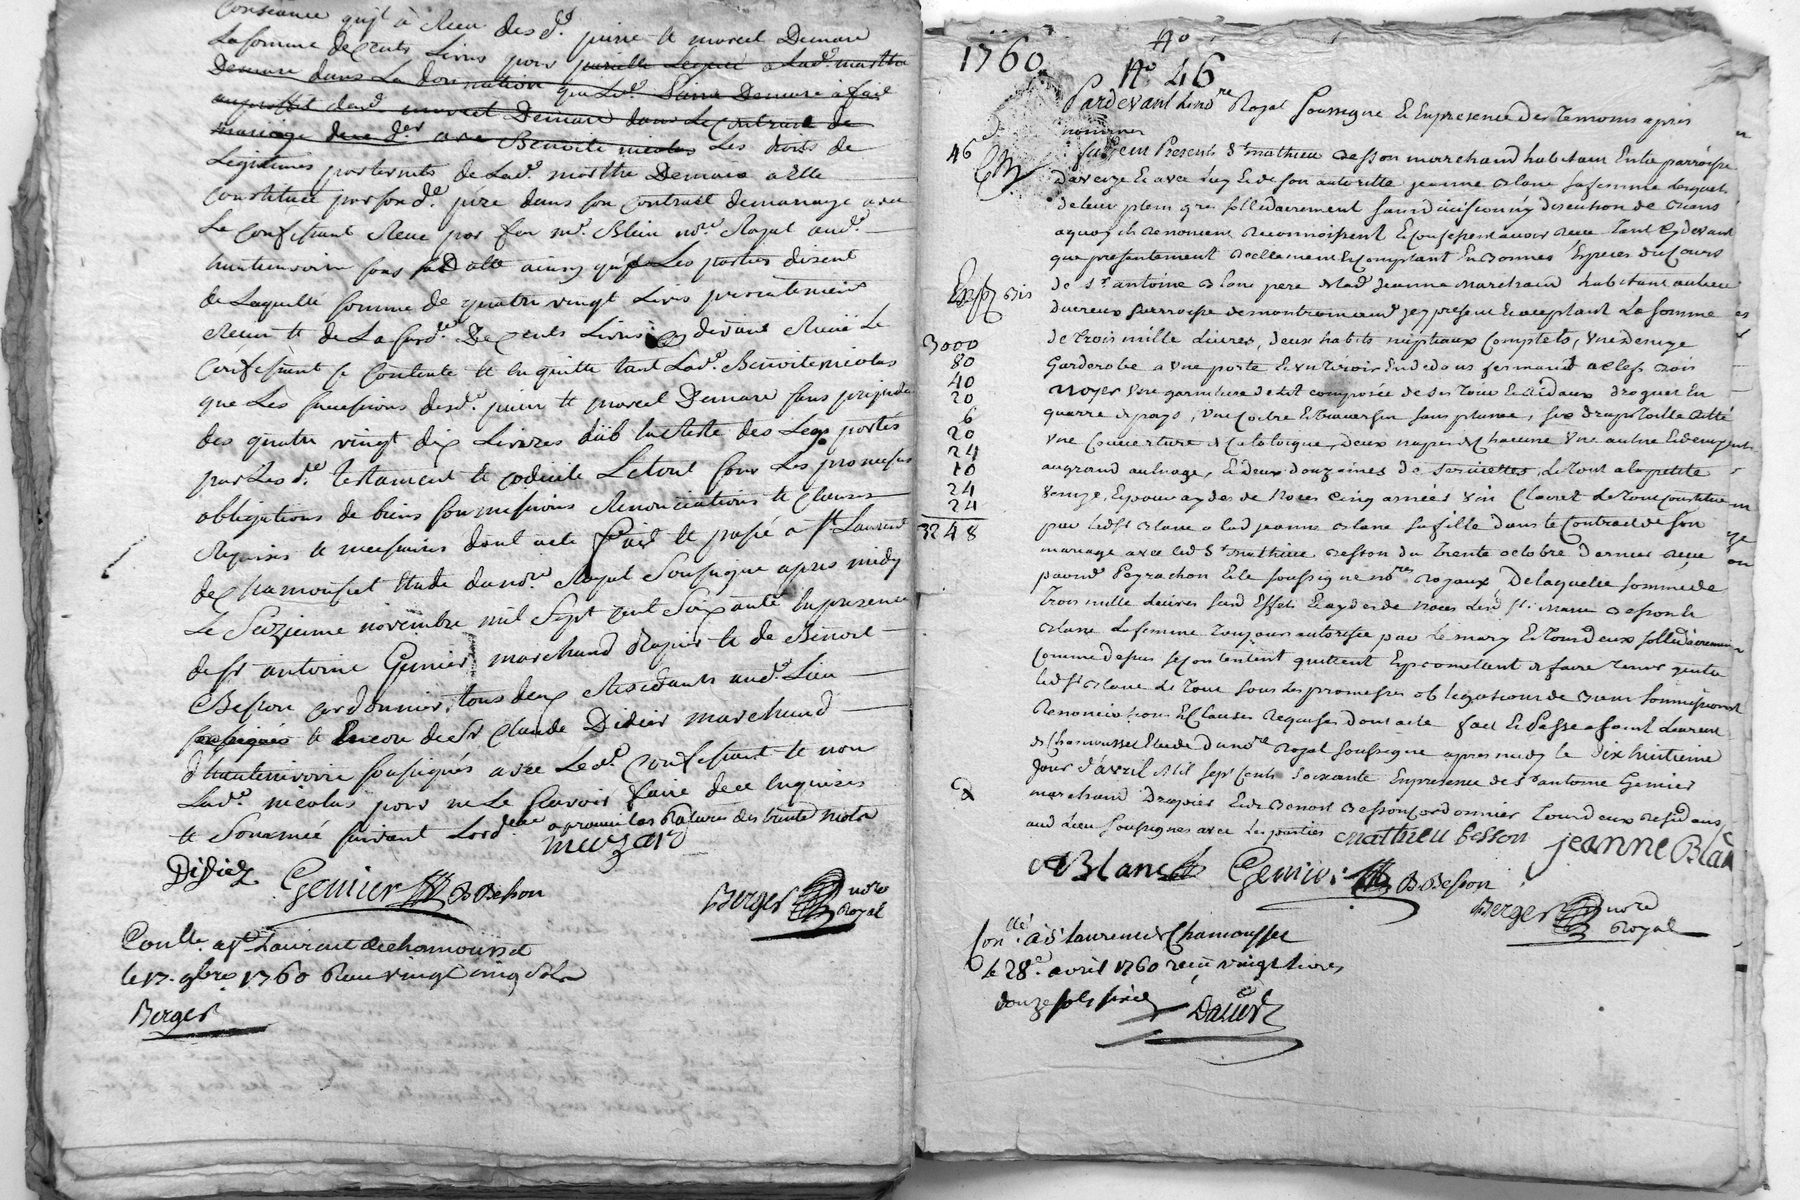 la somme de cents Livres pour
Demare dans La donnation que Led. Pierre Demare a fait
au proffit dud. marcel Demare dans Le contract de
mariage avec Benoite nicolas Les droits de
Legitimes maternels de Lad. marthe Demare a Elle
constituée par son d. père dans son contract de mariage avec
Le confessant Receu par feu me. Blein nore. Royal aud.
hautenvoire sous sa datte ainsy que Les parties disent
de Laquelle somme de quatre vingt Livres presentement
Receu et de La susd. de cents Livres cy devant Receu Le
confessant se contente et en quitte tant Lad. Benoite nicolas
que Les successeurs desd. pierre et marcel Demare sans prejudice
des quatre vingt dix Livres du reste des Legs portés
par Lesd. testament et codicile Le tout sous Les promesses
obligations de biens soumissions Renonciations et clauses
Requises et necessaires dont acte fait et passé a St. Laurent
de chamousset Etude du nore. Royal Soussigné apres midy
Le Seizieme novembre mil Sept cent Soixante En presence
de Sr antoine Genier marchand Drapier et de Benoit
Besson cordonnier, tous deux Residants aud. Lieu
et Encore de Sr Claude Didier marchand
d'hautenvoire soussignés avec Led. confessant et non
Lad. nicolas pour ne Le sçavoir faire de ce Enquises
et Sommée suivant Lord.ce aprouvé les Ratures des trente mots
Didiez Genier B Besson
Berger nore Royal
Conlle. a St. Laurent de chamousset
le 17. 9bre 1760 Receu vingt cinq sols
Berger
1760
No
No 46
Pardevant Le nore Royal soussigné Et En presence des Temoins apres
nommés
46
furent Presents Sr mathieu Besson marchand habitant En la parroisse
d'aveize Et avec luy Et de son autorité jeanne Blanc sa femme Lesquels
de leur plein gré sollidairement sans division ny discution de Biens
a quoy ils Renoncent Reconnoissent Et confessent avoir receu tant Cy devant
que presentement Reellement Et Comptant En Bonnes Especes du Cours
Bis
de Sr antoine Blanc pere de lad. Jeanne marchand habitant au lieu
du creux parroisse de montromand icy present Et acceptant La somme
3000
de trois mille Livres, deux habits nuptiaux complets, une demye
80
Garderobe a une porte Et un tiroir En dedans fermant a clef Bois
40
noyer une garniture de lit composée de ses tour Et Ridaux droguet En
20
quarré de pays, une coitre Et traversin sans plume, six draps toille Ritté
6
une couverture de Catalogne, deux napes de chacune une aulne Et demy
20
au grand aulnage, Et deux douzaines de serviettes, Le tout a la petite
24
10
venize, Et pour aydes de Noces cinq asnées vin Clairet Le tout constitué
24
par led. Sr Blanc a lad jeanne Blanc sa fille dans le Contract de son
24
3248
mariage avec led Sr mathieu Besson du trente octobre dernier Receu
par me. Peyrachon Et le soussigné nores Royaux De laquelle somme de
trois mille Livres susd. Effets Et aydes de Noces Lesd. Srs. maries Besson Et
Blanc La femme toujours autorisée par le mary Et tous deux sollidairement
comme dessus se contentent quittent Et promettent de faire tenir quitte
led. Sr Blanc Le tout sous les promesses obligations de Biens soumissions
Renonciations Et Clauses Requises dont acte fait Et Passé a saint Laurent
de Chamousset Etude du nore Royal soussigné apres midy le dix huitieme
jour d'avril Mil sept cents soixante En presence de Sr antoine Genier
marchand Drapier Et de Benoit Besson Cordonnier tous deux residans
aud. Lieu soussignés avec Les parties mathieu besson jeanne Blan
A Blanc Genier B Besson
Berger nore Royal
Conllé. a St laurent de Chamousset
le 28e. avril 1760 receu vingt livres
douze sols six d
Dalier